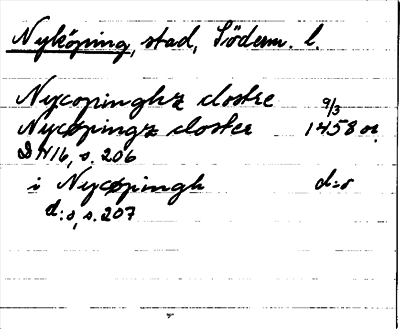 Nyköping, stad, Söderm. l.
Nycopinghz clostre 9/3
Nycøpingz closter 1458 or.
DN16, s. 206
i Nycøpingh d:o
d:o, s. 207